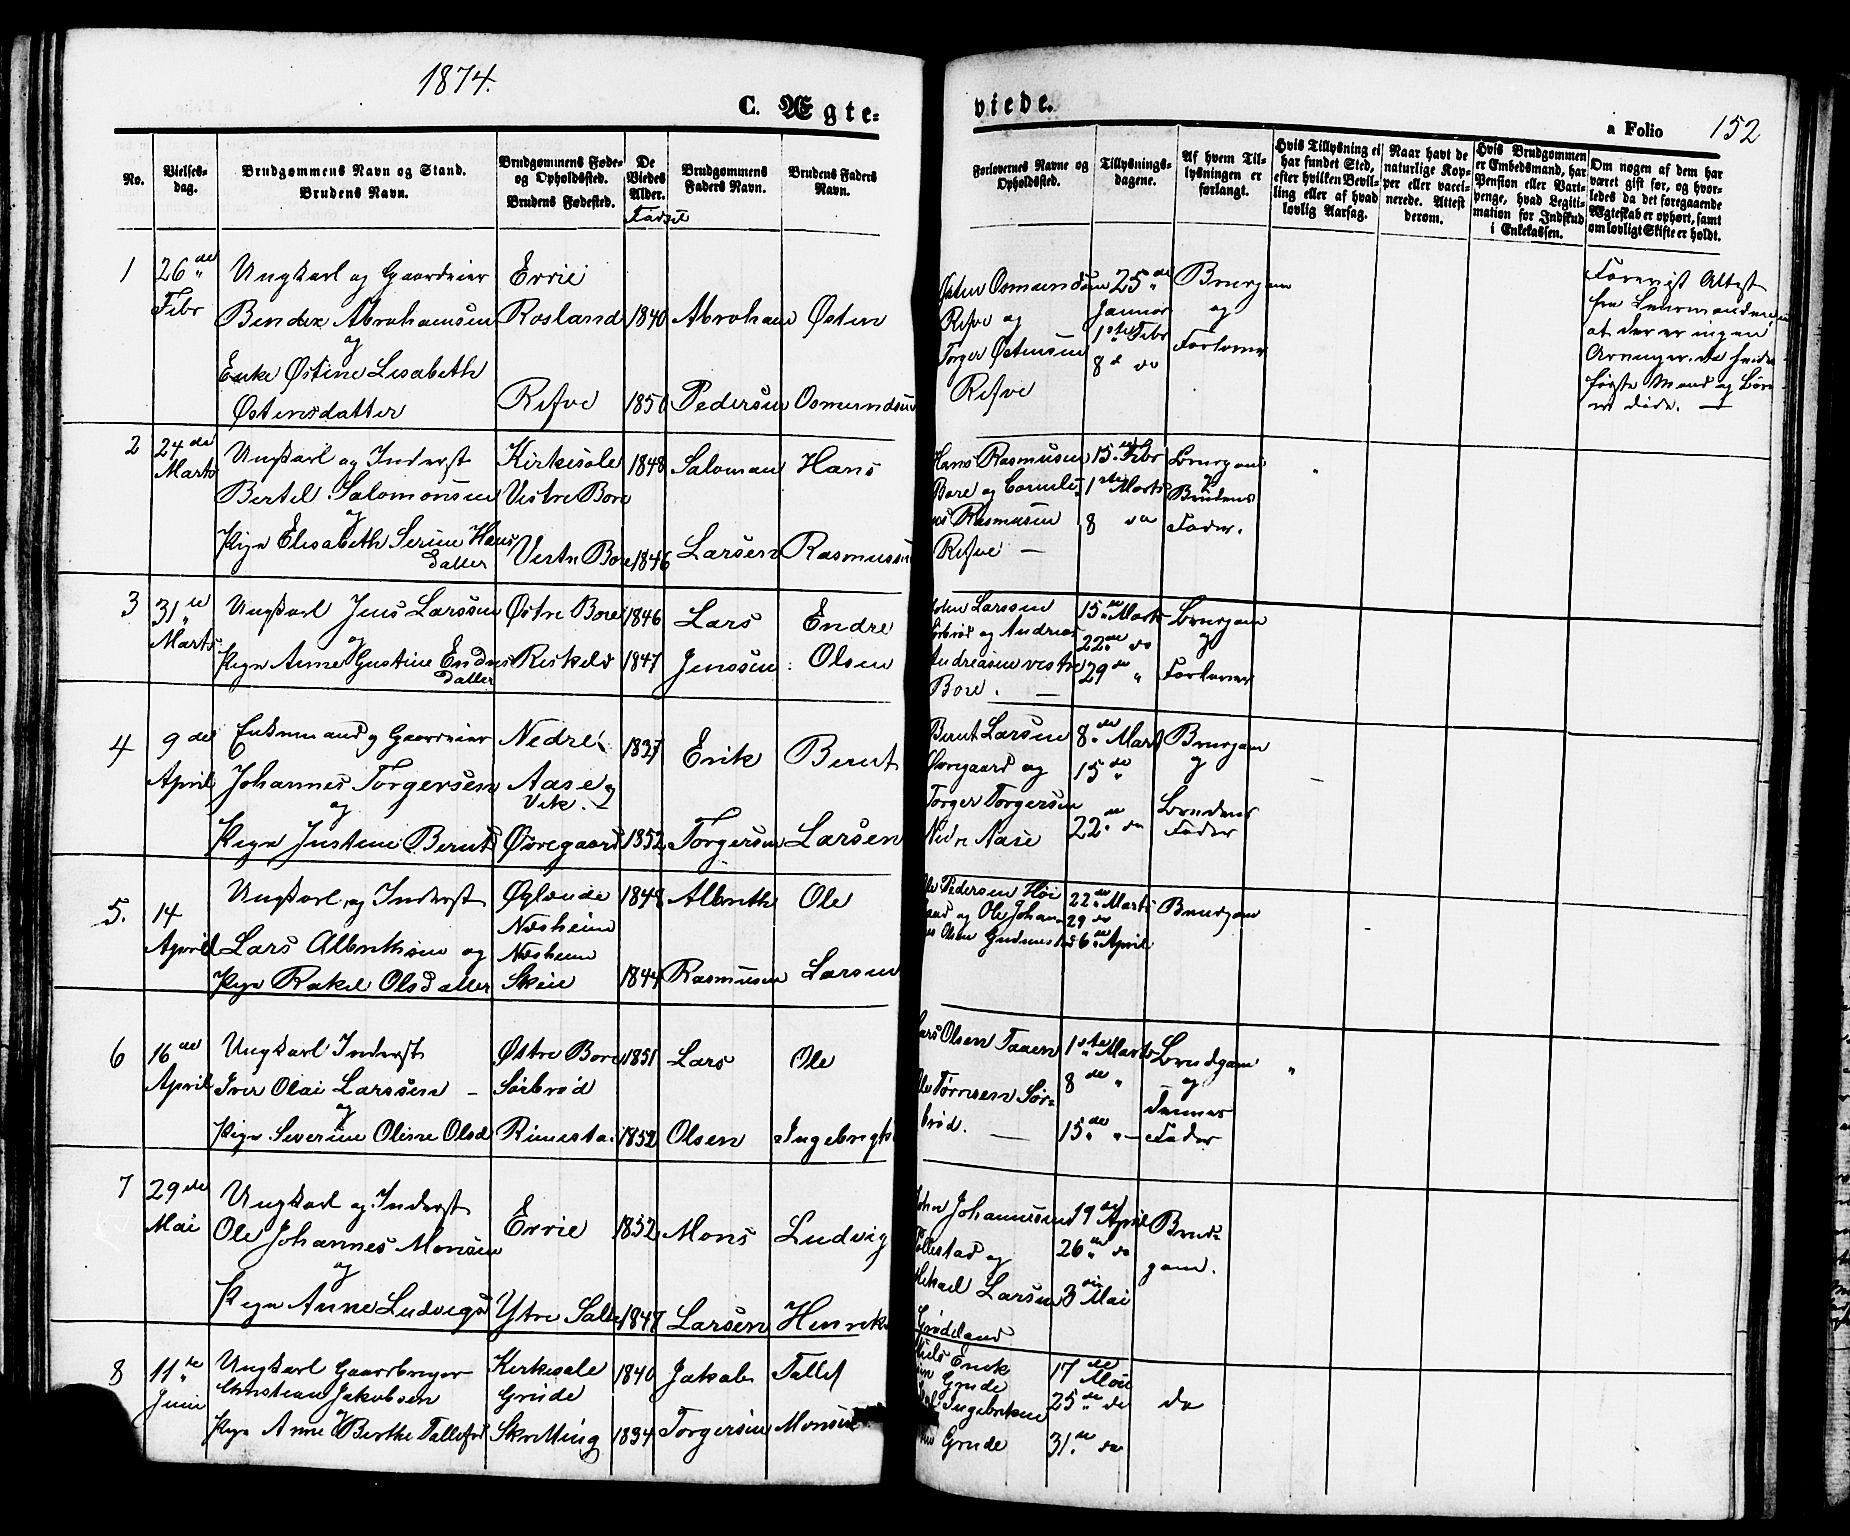 1874.
C. Ægte=
viede.
a Folio 152
No.
Vielses-
dag.
Brudgommens Navn og Stand.
Brudens Navn.
Brudgommens Føde-
og Opholdssted.
Brudens Fødested.
De
Viedes
Alder.
Fødsel
Brudgommens
Faders Navn.
Brudens Faders
Navn.
Forlovernes Navne og
Opholdssted.
Tillysnings-
dagene.
Af hvem Til-
lysningen er
forlangt.
Hvis Tillysning ei
har fundet Sted,
efter hvilken Bevil-
ling eller af hvad
lovlig Aarsag.
Naar havt de
naturlige Kop-
per eller vacci-
nerede. Attest
derom.
Hvis Brudgommen
er Embedsmand, har
Pension eller Varti-
penge, hvad Legiti-
mation for Indskud
i Enkekassen.
Om nogen af dem har
været gift før, og hvor-
ledes da det foregaaende
Ægteskab er ophørt, samt
om lovligt Skifte er holdt.
1
26de
Febr
Ungkarl og Gaardeier
Bendix Abrahamsen
og
Enke Østine Lisabeth
Østensdatter
Errie
Rosland
Refve
1840
1850
Abraham
Pedersen
Østen
Osmundsen
Østen Osmundsen
Refve og
Torger Østensen
Refve
25de
Januar
1ste Febr
8de do
Bruegom
og
Forlover
Forevist Attest
fra Lensmanden
at der er ingen
Arvinger, da hendes
første Mand og Børn
er døde. —
2
24de
Marts
Ungkarl og Inderst
Bertel Salomonsen
og
Pige Elisabeth Serine Hans
datter
Kirkesole
Vestre Bore
Vestre Bore
1848
1846
Saloman
Larsen
Hans
Rasmussen
Hans Rasmusen
Bore og Corneli-
us Rasmusen
Refve —
15de Febr
1ste Marts
8 do
Bruegom
og
Brudens
Fader.
3
31te
Marts
Ungkarl Jens Larssen
og
Pige Anne Gustine Endres
datter
Østre Bore
Reskeld
1846
1847
Lars
Jenssen
Endre
Olsen
John Larssen
Sørbrød og Andreas
Andreasen vestre
Bore. —
15de Marts
22de do
29de "
Bruegom
og
Forlover
4
9de
April
Enkemand og Gaardeier
Johannes Torgersen
og
Pige Justine Bernts
Nedre
Aase og
Vik.
Øvregaard
1837
1852
Erik
Torgersen
Bernt
Larsen
Bernt Larsen
Øvregaard og
Torger Torgersen
Nedre Aase
8de Marts
15de "
22de do
Bruegom
og
Brudens
Fader
5.
14
April
Ungkarl og Inderst
Lars Albrethsen og
Pige Rakel Olsdatter
Øglænde
Næsheim
Næsheim
Skeie
1848
1844
Albreth
Rasmusen
Ole
Larsen
Ole Pedersen Høi
land og Ole Johan-
nes Olsen
22de Marts
29 do
6te April
Bruegom
6
16de
April
Ungkarl Inderst
Iver Olai Larssen —
og
Pige Severine Oline Olsd
Østre Bore
Sørbrød
Rimesta
1851
1852
Lars
Olsen
Ole
Ingebrigts
Lars Olsen Taaen
Ole Tørresen Sør-
brød. —
1ste Marts
8de "
15de " —
Brudgom
og
hennes
Fader
7
29de
Mai
Ungkarl og Inderst
Ole Johannes Monsen
og
Pige Anne Ludvigs
Errie
Ytre Salte
1852
1847
Mons
Larsen
Ludvig
Henriks
John Johannesen
Tollestad og
Mikael Larsen
Grødeland
19de April
26de do
3die Mai
Brud-
gom.
8
11te
Juni
Ungkarl Gaardbruger
Christian Jakobsen
og
Pige Anne Berthe Tallefsd
Kirkesole
Grude
Skretting
1840
1834
Jakob
Torgersen
Tallef
Monsen
Niels Enok
sen Grude
Ingebretsen
Grude
17de
Mai
25de do
31te do
do